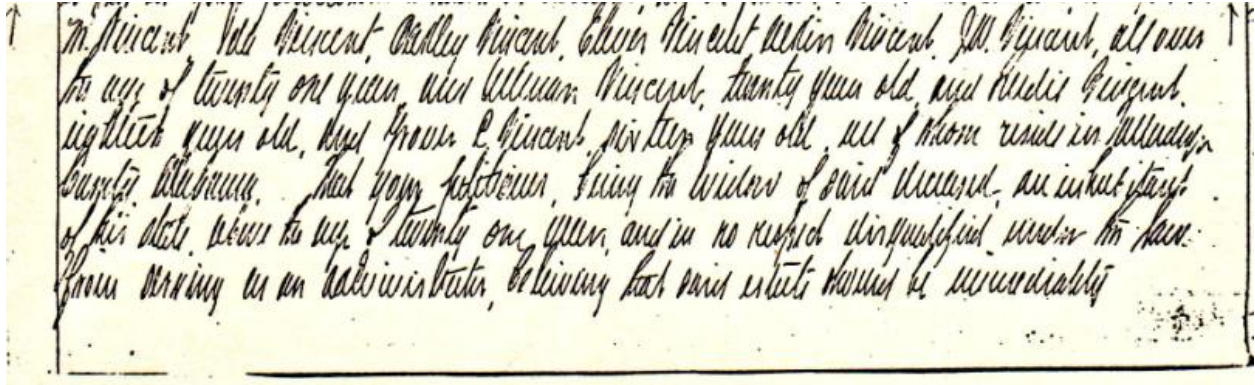 M. Vincent Vincent, Oakley Vincent, Elmer Vincent Vincent, J.W. Vincent, all over
the age of twenty one years, and Vincent, twenty years old, and Vincent,
eighteen years old, and Grover C. Vincent, sixteen years old, all of whom reside in
County, Alabama. That your petitioner, being the widow of said deceased, an inhabitant
of this state, above the age of twenty one years, and in no respect disqualified under the law
from serving as an administrator, believing that said estate should be immediately